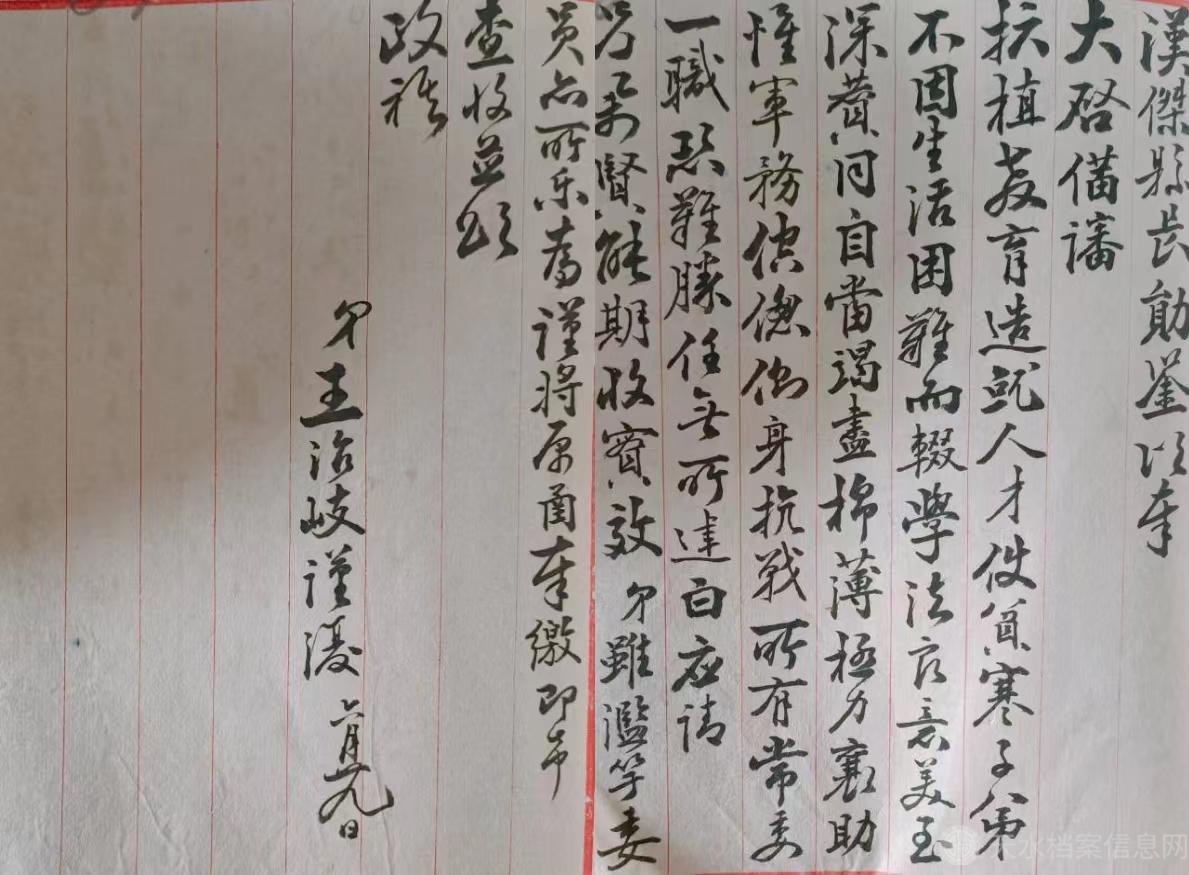 漢傑縣長勛鑒頃奉
大啓備審
扶植教育造就人才使貧寒子弟
不因生活困難而輟學法良意美至
深贊同自當竭盡棉薄極力襄助
惟軍務倥傯側身抗戰所有常委
一職恐難勝任無所建白应請
另簡賢能期收實效 弟雖濫竽委
員亦所乐為謹將原函奉繳即希
查收並頌
政祺
弟王治岐謹復 六月廿九日
天水档案信息网